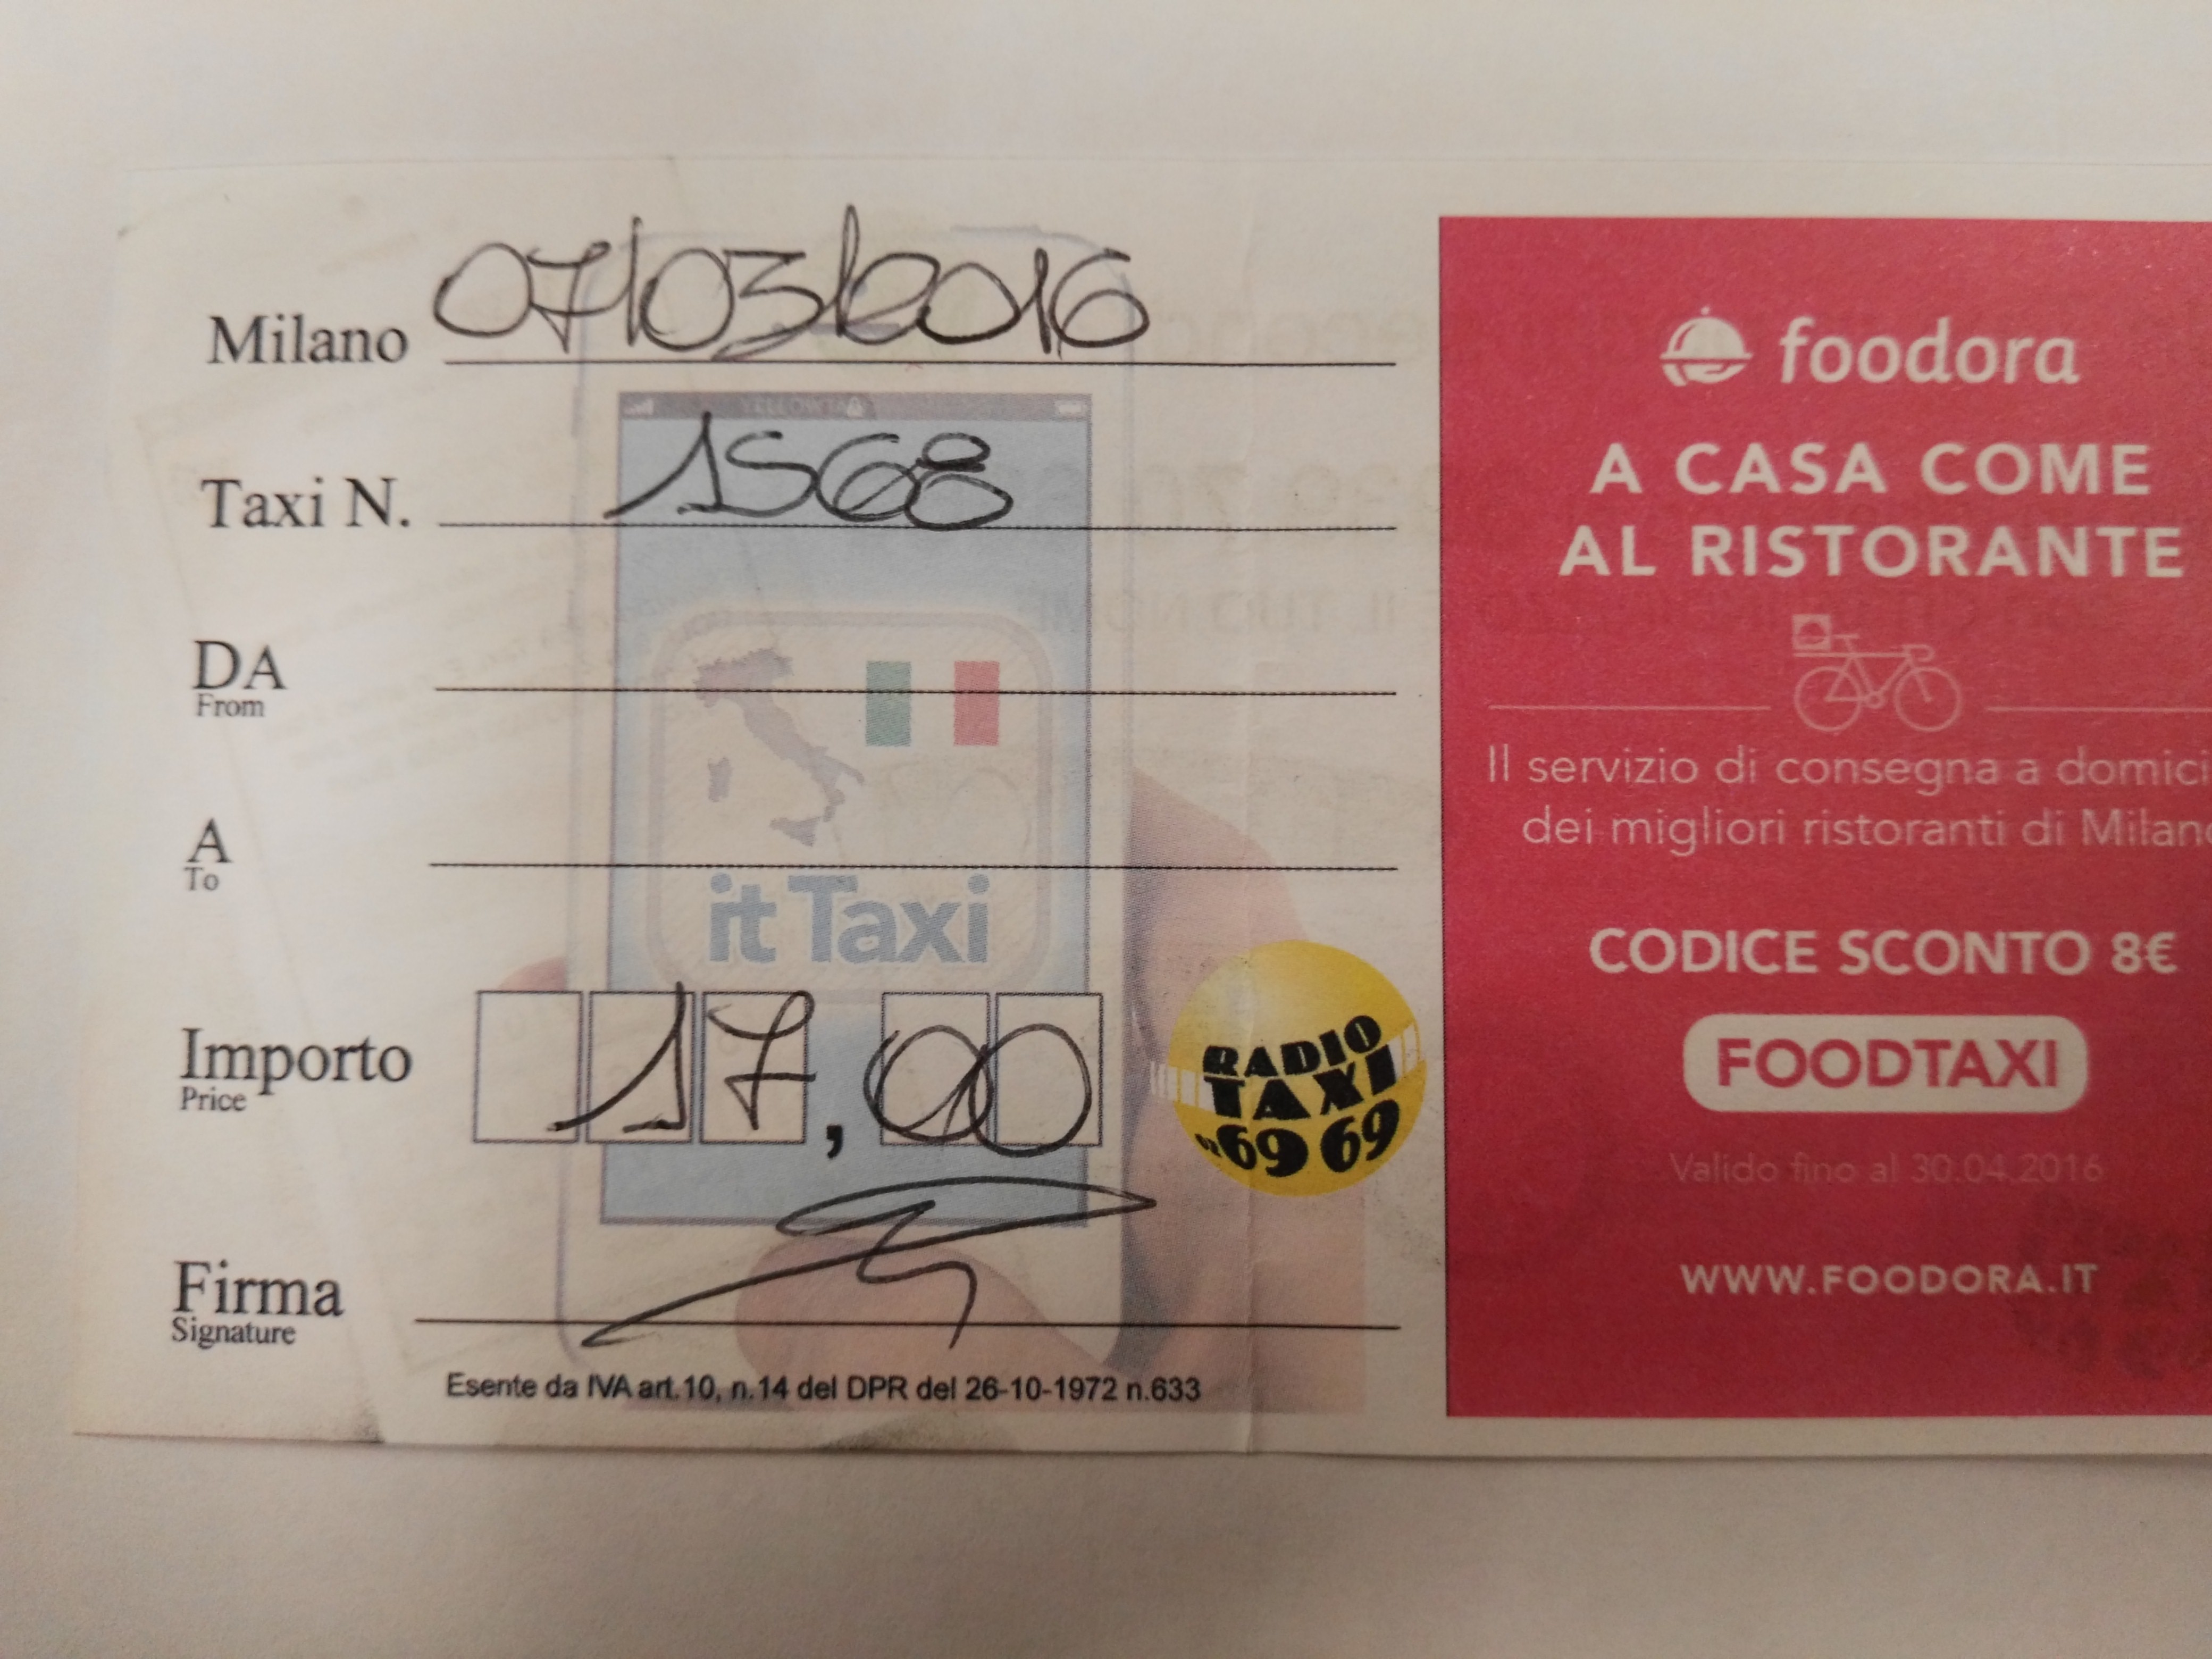 Milano 07/03/2016
Taxi N. 1568
DA
From
A
To
it Taxi
Importo 17,00
Price
RADIO
TAXI
02 69 69
Firma
Signature
Esente da IVA art.10, n.14 del DPR del 26-10-1972 n.633
foodora
A CASA COME
AL RISTORANTE
Il servizio di consegna a domici
dei migliori ristoranti di Milano
CODICE SCONTO 8€
FOODTAXI
Valido fino al 30.04.2016
WWW.FOODORA.IT